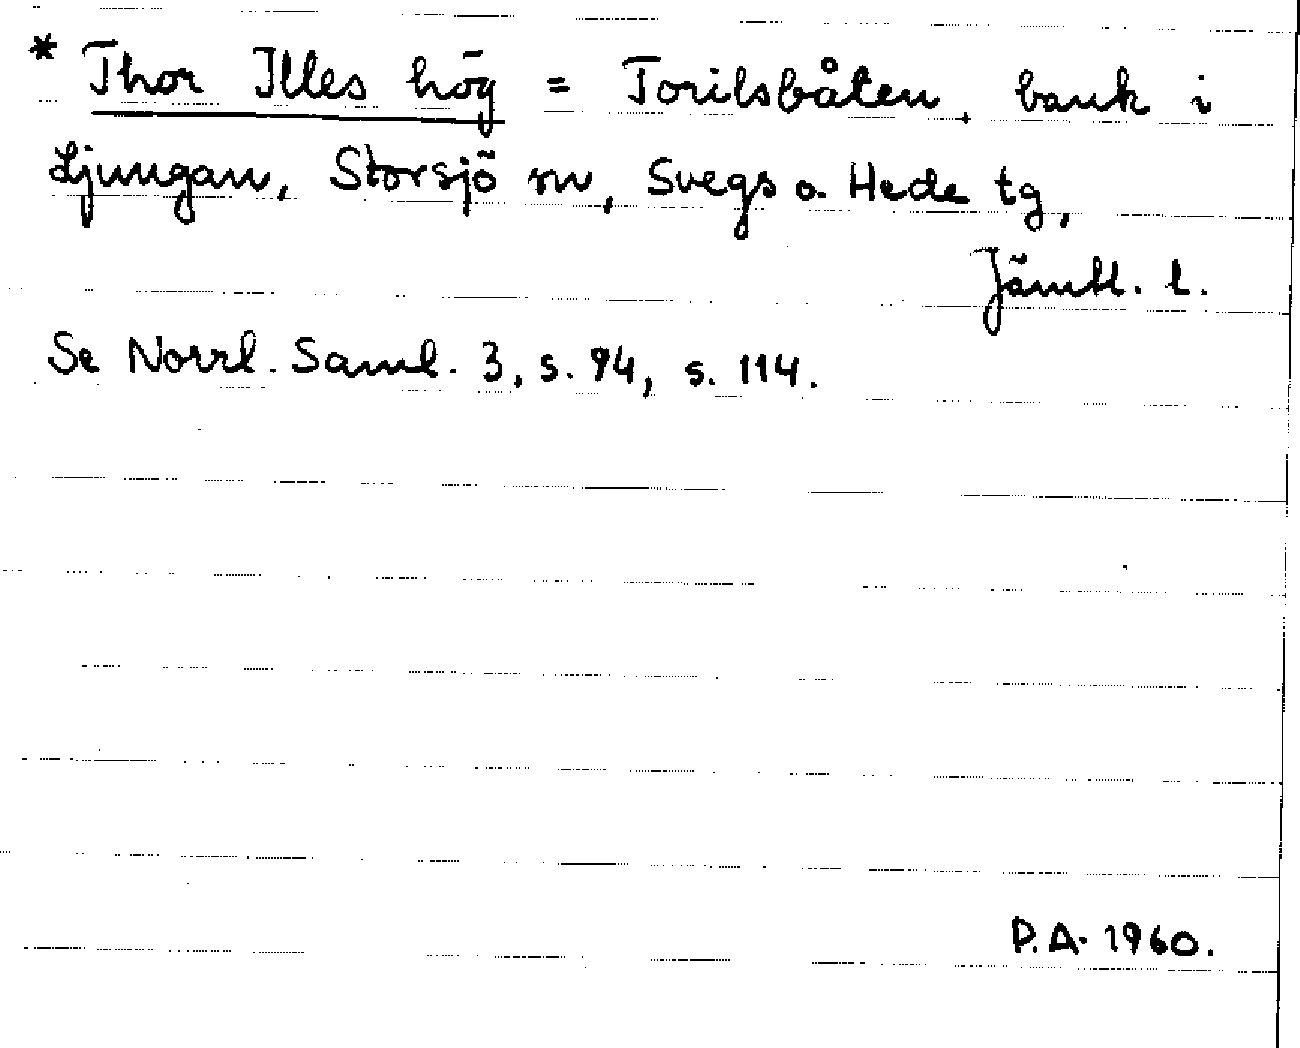 * Thor Illes hög = Torilsbåten, bank i
Ljungan, Storsjö sn, Svegs o. Hede tg,
Jämtl. l.
Se Norrl. Saml. 3, s. 94, s. 114.
P.A. 1960.